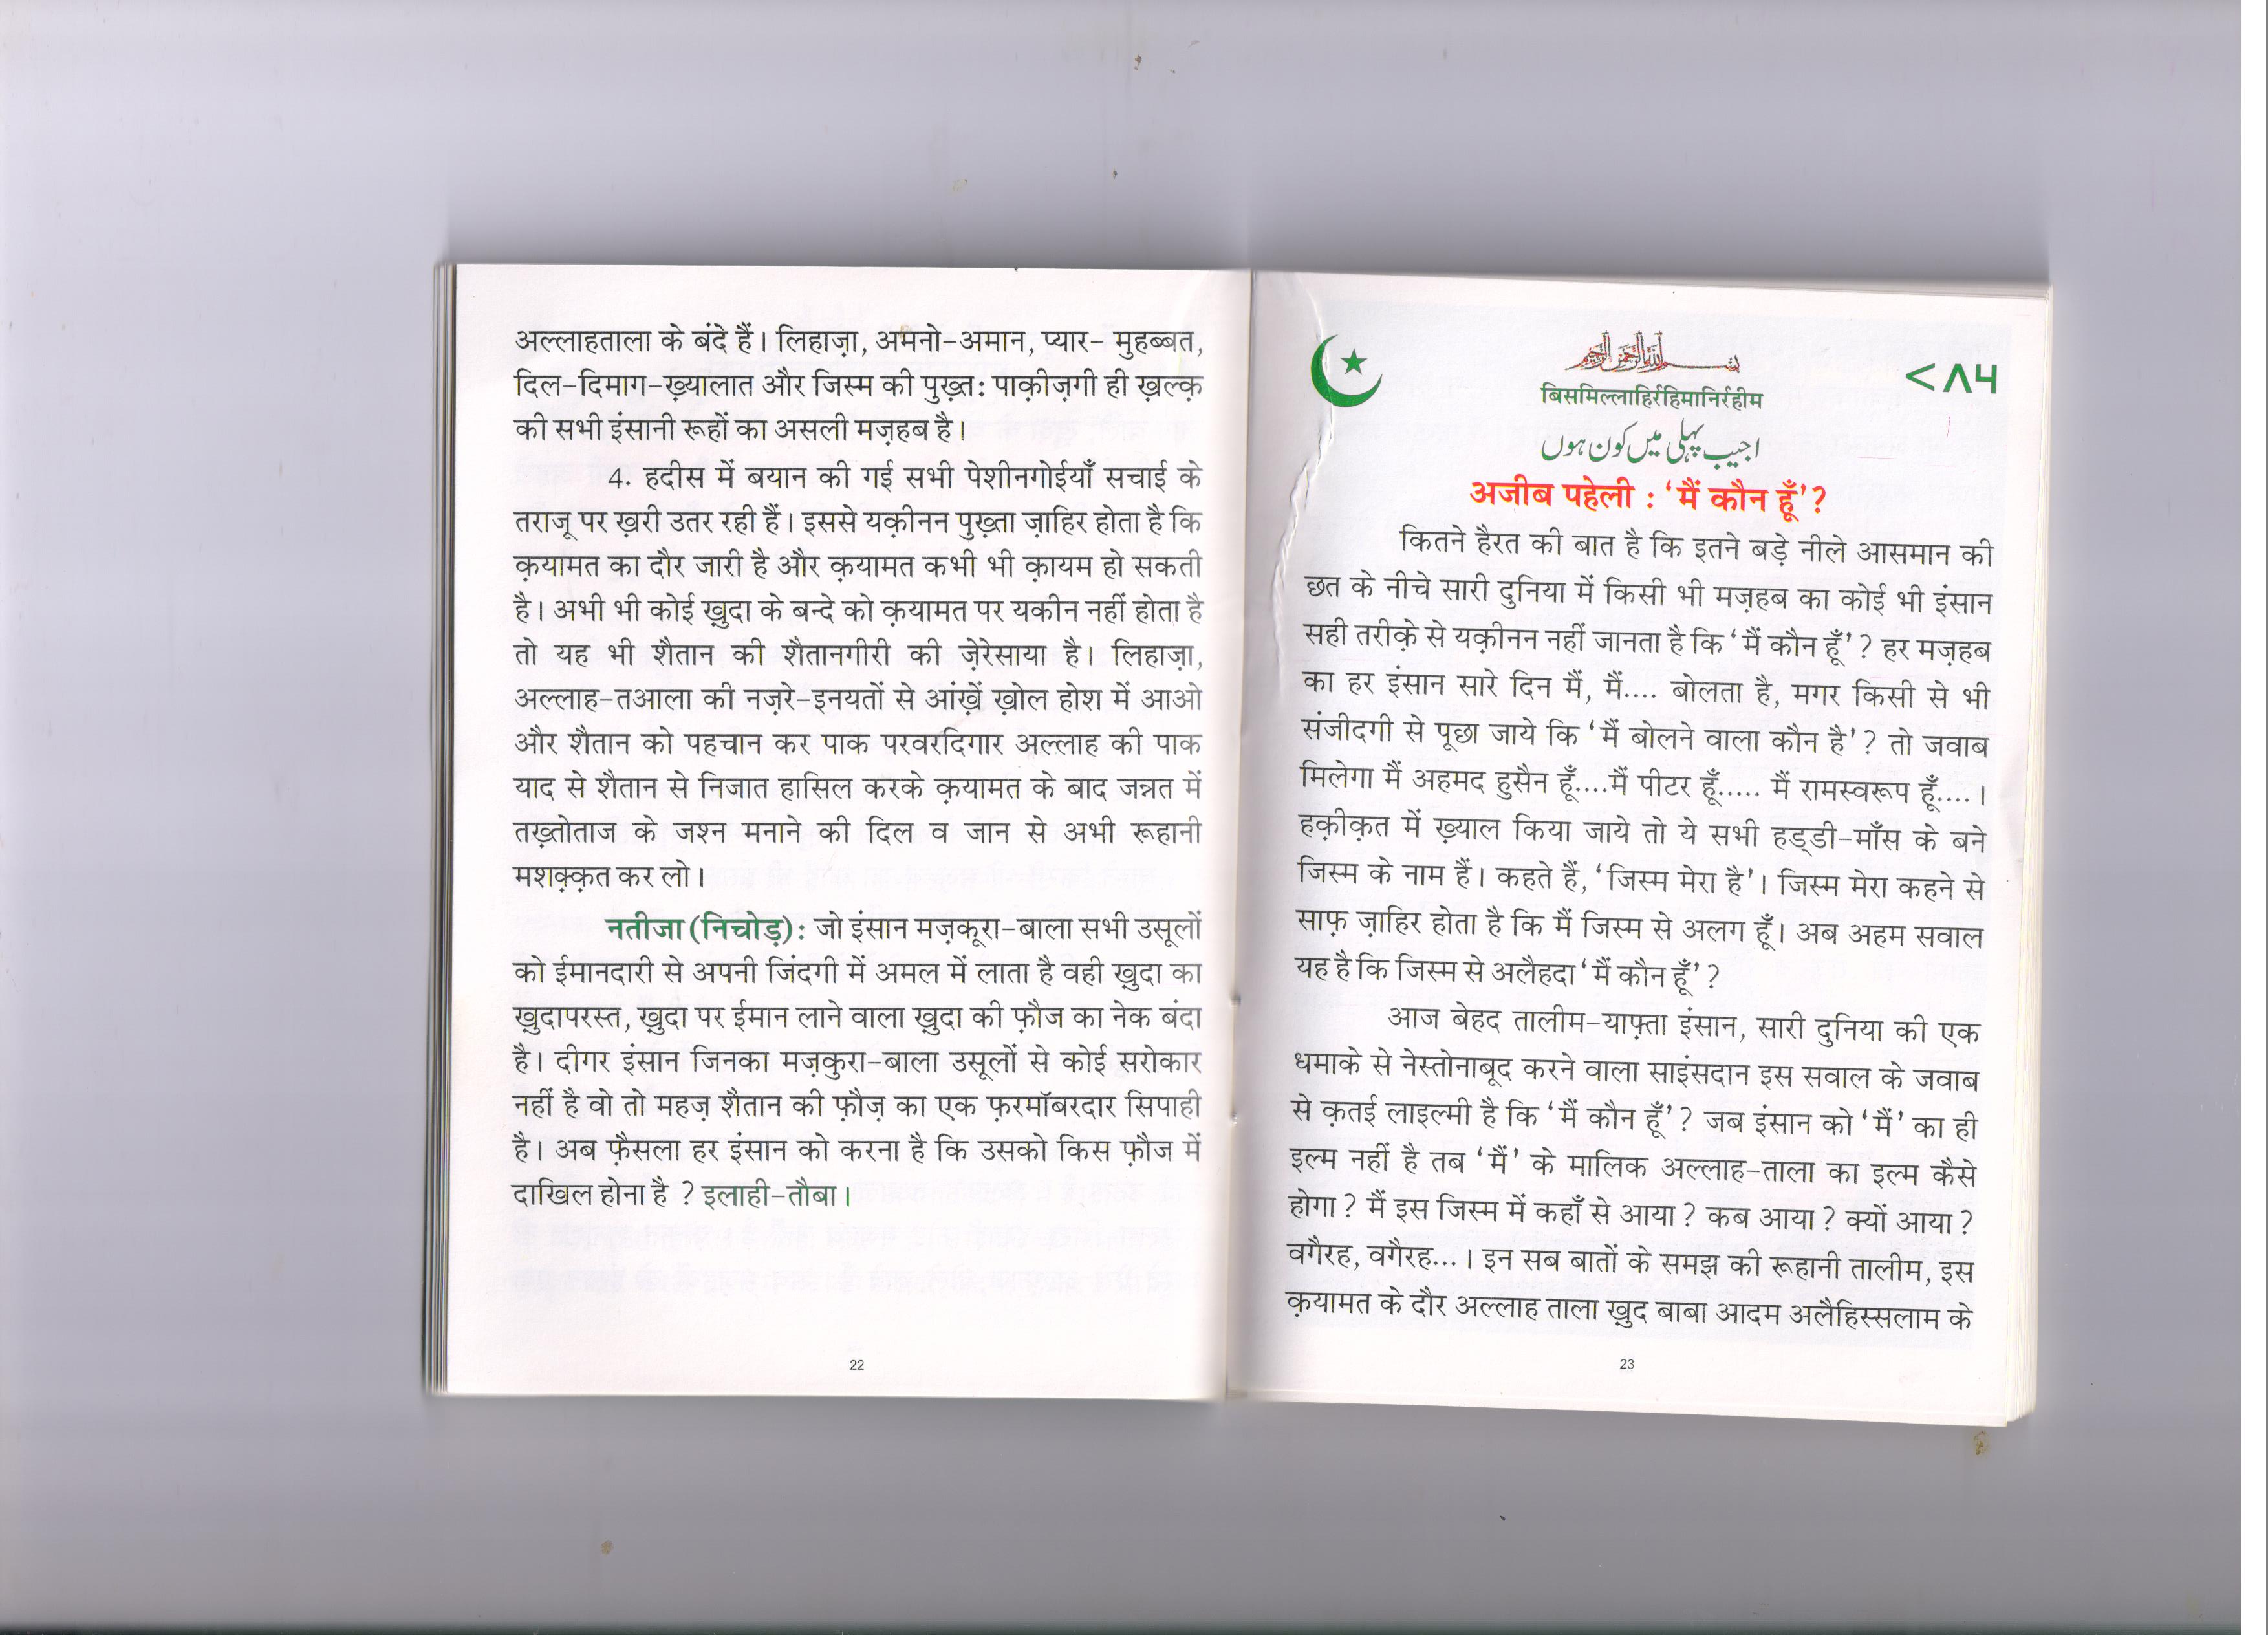 अल्लाहताला के बंदे हैं। लिहाज़ा, अमनो-अमान, प्यार- मुहब्बत,
दिल-दिमाग-ख़्यालात और जिस्म की पुख़्त: पाक़ीज़गी ही ख़ल्क़
की सभी इंसानी रूहों का असली मज़हब है।
4. हदीस में बयान की गई सभी पेशीनगोईयाँ सचाई के
तराजू पर ख़री उतर रही हैं। इससे यक़ीनन पुख़्ता ज़ाहिर होता है कि
क़यामत का दौर जारी है और क़यामत कभी भी क़ायम हो सकती
है। अभी भी कोई ख़ुदा के बन्दे को क़यामत पर यकीन नहीं होता है
तो यह भी शैतान की शैतानगीरी की ज़ेरेसाया है। लिहाज़ा,
अल्लाह-तआला की नज़रे-इनयतों से आंख़ें ख़ोल होश में आओ
और शैतान को पहचान कर पाक परवरदिगार अल्लाह की पाक
याद से शैतान से निजात हासिल करके क़यामत के बाद जन्नत में
तख़्तोताज के जश्न मनाने की दिल व जान से अभी रूहानी
मशक़्क़त कर लो।
नतीजा (निचोड़): जो इंसान मज़कूरा-बाला सभी उसूलों
को ईमानदारी से अपनी जिंदगी में अमल में लाता है वही ख़ुदा का
ख़ुदापरस्त, ख़ुदा पर ईमान लाने वाला ख़ुदा की फ़ौज का नेक बंदा
है। दीगर इंसान जिनका मज़कुरा-बाला उसूलों से कोई सरोकार
नहीं है वो तो महज़ शैतान की फ़ौज़ का एक फ़रमॉबरदार सिपाही
है। अब फ़ैसला हर इंसान को करना है कि उसको किस फ़ौज में
दाखिल होना है ? इलाही-तौबा।
22
بسم اللہ الرحمن الرحیم
<٨५
बिसमिल्लाहिर्रहिमानिर्रहीम
اجیب پہلی میں کون ہوں
अजीब पहेली : ‘मैं कौन हूँ’?
कितने हैरत की बात है कि इतने बड़े नीले आसमान की
छत के नीचे सारी दुनिया में किसी भी मज़हब का कोई भी इंसान
सही तरीक़े से यक़ीनन नहीं जानता है कि ‘मैं कौन हूँ’? हर मज़हब
का हर इंसान सारे दिन मैं, मैं.... बोलता है, मगर किसी से भी
संजीदगी से पूछा जाये कि ‘मैं बोलने वाला कौन है’? तो जवाब
मिलेगा मैं अहमद हुसैन हूँ....मैं पीटर हूँ..... मैं रामस्वरूप हूँ....।
हक़ीक़त में ख़्याल किया जाये तो ये सभी हड्डी-माँस के बने
जिस्म के नाम हैं। कहते हैं, ‘जिस्म मेरा है’। जिस्म मेरा कहने से
साफ़ ज़ाहिर होता है कि मैं जिस्म से अलग हूँ। अब अहम सवाल
यह है कि जिस्म से अलैहदा ‘मैं कौन हूँ’?
आज बेहद तालीम-याफ़्ता इंसान, सारी दुनिया की एक
धमाके से नेस्तोनाबूद करने वाला साइंसदान इस सवाल के जवाब
से क़तई लाइल्मी है कि ‘मैं कौन हूँ’? जब इंसान को ‘मैं’ का ही
इल्म नहीं है तब ‘मैं’ के मालिक अल्लाह-ताला का इल्म कैसे
होगा? मैं इस जिस्म में कहाँ से आया? कब आया? क्यों आया?
वगैरह, वगैरह...। इन सब बातों के समझ की रूहानी तालीम, इस
क़यामत के दौर अल्लाह ताला ख़ुद बाबा आदम अलैहिस्सलाम के
23